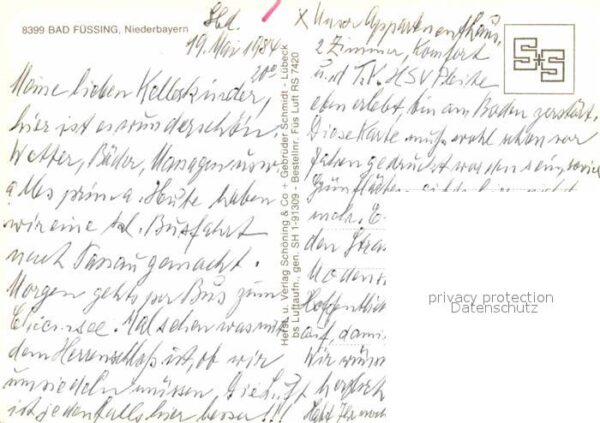 8399 BAD FÜSSING, Niederbayern
Sbd.
19. Mai 1984
20⁰⁰
Meine lieben
hier ist es wunderschön.
Wetter, Bäder, Massagen usw.
alles prima. Heute haben
wir eine Busfahrt
nach Passau gemacht.
Morgen gehts per Bus zum
Chiemsee. Mal sehen was mit
dem Herrenschloß ist, ob wir
umsiedeln müssen, die Luft
ist jedenfalls hier besser!!!
Herst. u. Verlag Schöning & Co + Gebrüder Schmidt - Lübeck
bs Luftaufn., gen. SH 1-91309 - Bestellnr. Füs Luft RS 7420
x Unser Appartementhaus,
2 Zimmer, Komfort
u. d T.V. HSV Pleite
eben erlebt, bin am Boden zerstört.
Diese Karte muß wohl schon vor
Jahren gedruckt worden sein, soviel
Grünflächen
mehr.
den
Modern
Hoffentlich
auf, dami
Wir wün
herzlich
S+S
privacy protection
Datenschutz